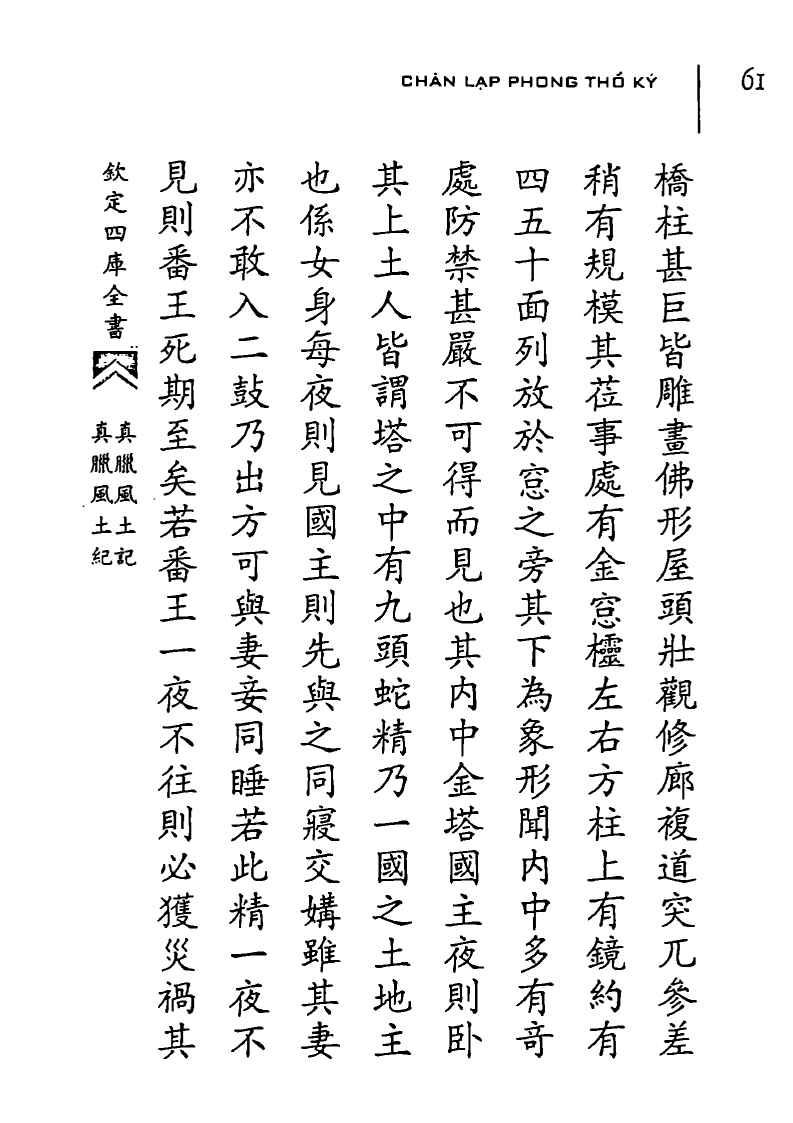 CHÂN LẠP PHONG THỔ KÝ
61
橋柱甚巨皆雕畫佛形屋頭壯觀修廊複道突兀參差
稍有規模其莅事處有金窓櫺左右方柱上有鏡約有
四五十面列放於窓之旁其下為象形聞内中多有奇
處防禁甚嚴不可得而見也其内中金塔國主夜則卧
其上土人皆謂塔之中有九頭蛇精乃一國之土地主
也係女身每夜則見國主則先與之同寢交媾雖其妻
亦不敢入二鼓乃出方可與妻妾同睡若此精一夜不
見則番王死期至矣若番王一夜不往則必獲災禍其
欽定四庫全書
真臘風土記
真臘風土紀